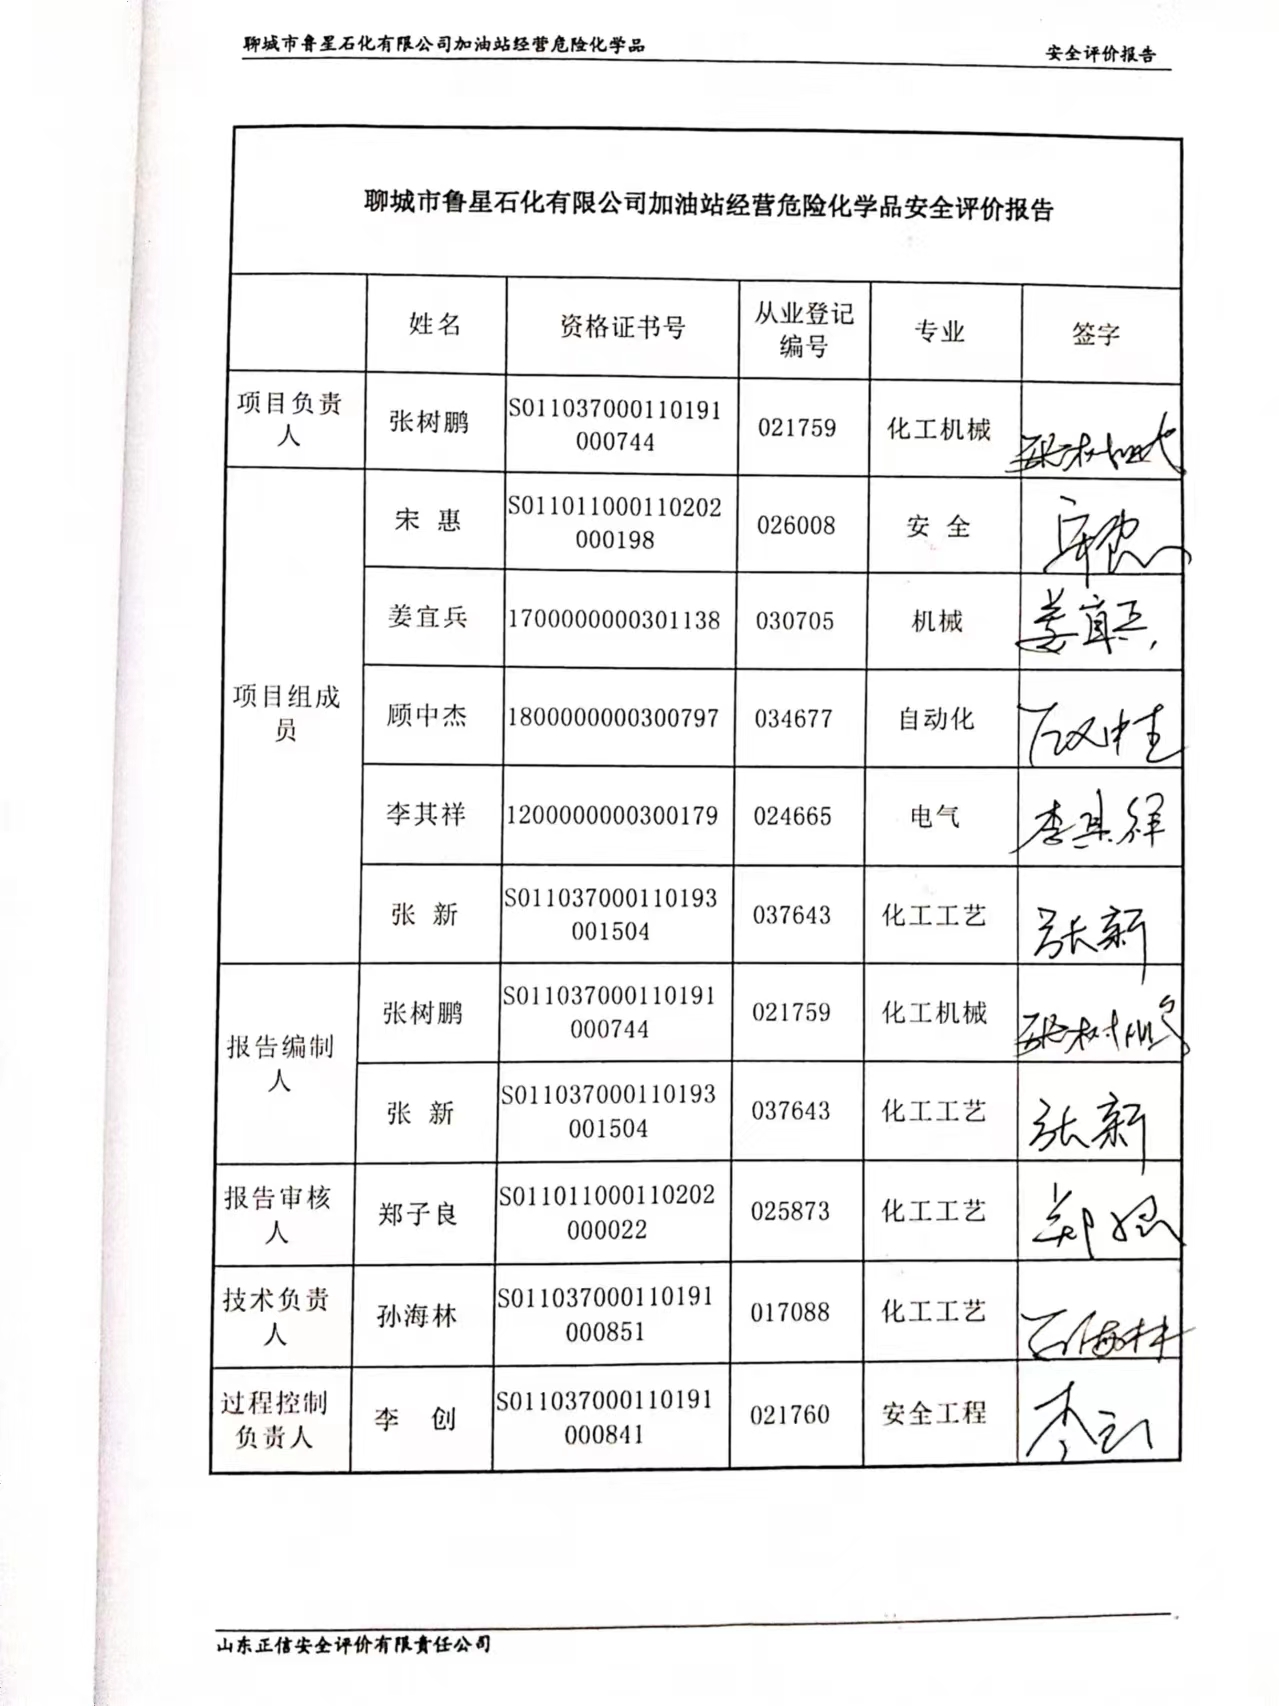 聊城市鲁星石化有限公司加油站经营危险化学品 安全评价报告
聊城市鲁星石化有限公司加油站经营危险化学品安全评价报告
姓名 资格证书号 从业登记编号 专业 签字
项目负责人 张树鹏 S011037000110191000744 021759 化工机械 张树鹏
项目组成员 宋 惠 S011011000110202000198 026008 安 全 宋惠
姜宜兵 1700000000301138 030705 机械 姜宜兵
顾中杰 1800000000300797 034677 自动化 顾中杰
李其祥 1200000000300179 024665 电气 李其祥
张 新 S011037000110193001504 037643 化工工艺 张新
报告编制人 张树鹏 S011037000110191000744 021759 化工机械 张树鹏
张 新 S011037000110193001504 037643 化工工艺 张新
报告审核人 郑子良 S011011000110202000022 025873 化工工艺 郑子良
技术负责人 孙海林 S011037000110191000851 017088 化工工艺 孙海林
过程控制负责人 李 创 S011037000110191000841 021760 安全工程 李创
山东正信安全评价有限责任公司